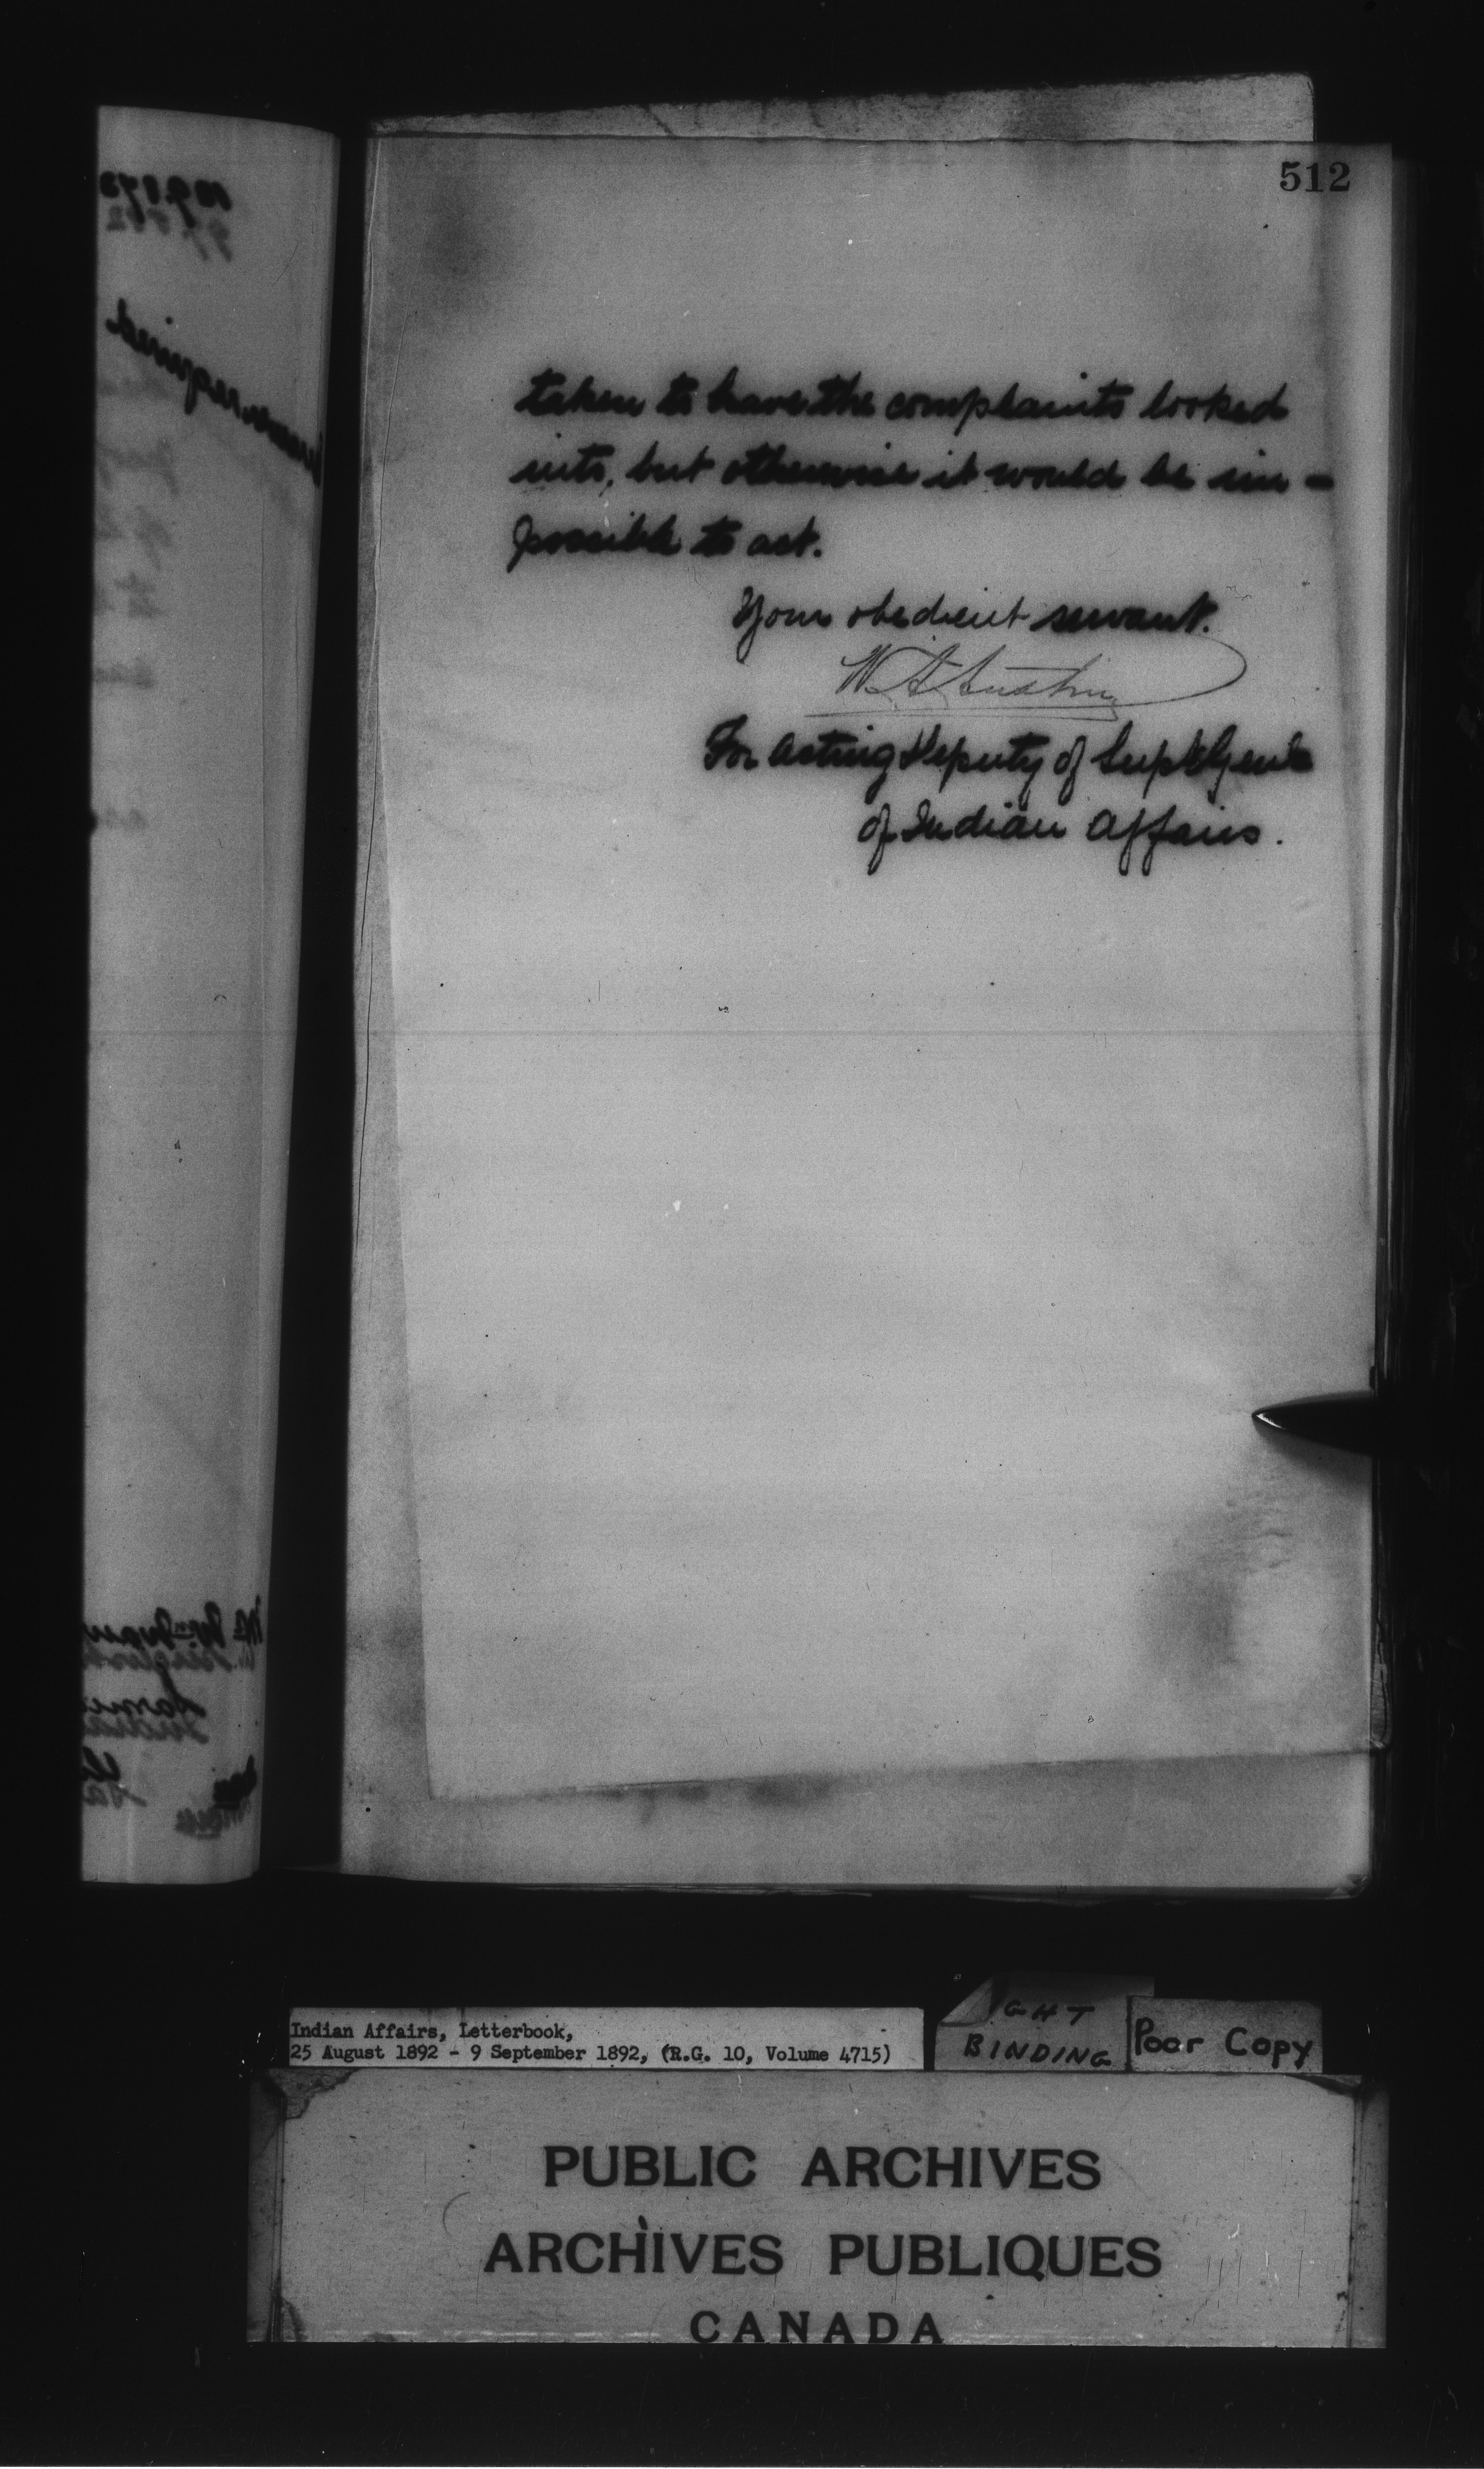 512
taken to have the complaints looked
into, but otherwise it would be im-
possible to act.
Your obedient servant.
W. A. Austin
For Acting Deputy of Supt Genl
of Indian Affairs.
Indian Affairs, Letterbook,
25 August 1892 - 9 September 1892, (R.G. 10, Volume 4715)
GHT
BINDING
Poor Copy
PUBLIC ARCHIVES
ARCHIVES PUBLIQUES
CANADA